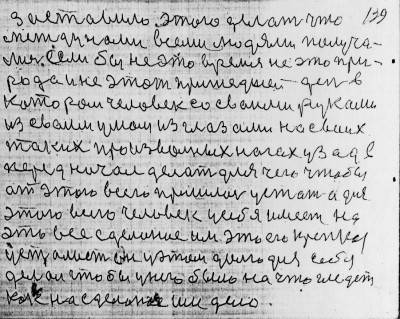 заставило этого делат что 139
между нами всеми людями получа-
лис. Если бы не это время не это при-
рода и не этот пришедшей ден в
котором человек со своими руками
из своим умом из глазами на своих
таких произволных ногах узад в
перед начал делат для чего чтобы
от этого всего пришлос устат а для
этого всего человек у себя имеет на
это все сделаное им это его крепко
устало он у этом дело для себя
делал чтобы у него было на что глядет
как на сделаное им дело.